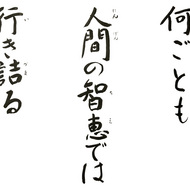 何ごとも
人間の智恵では
行き詰る